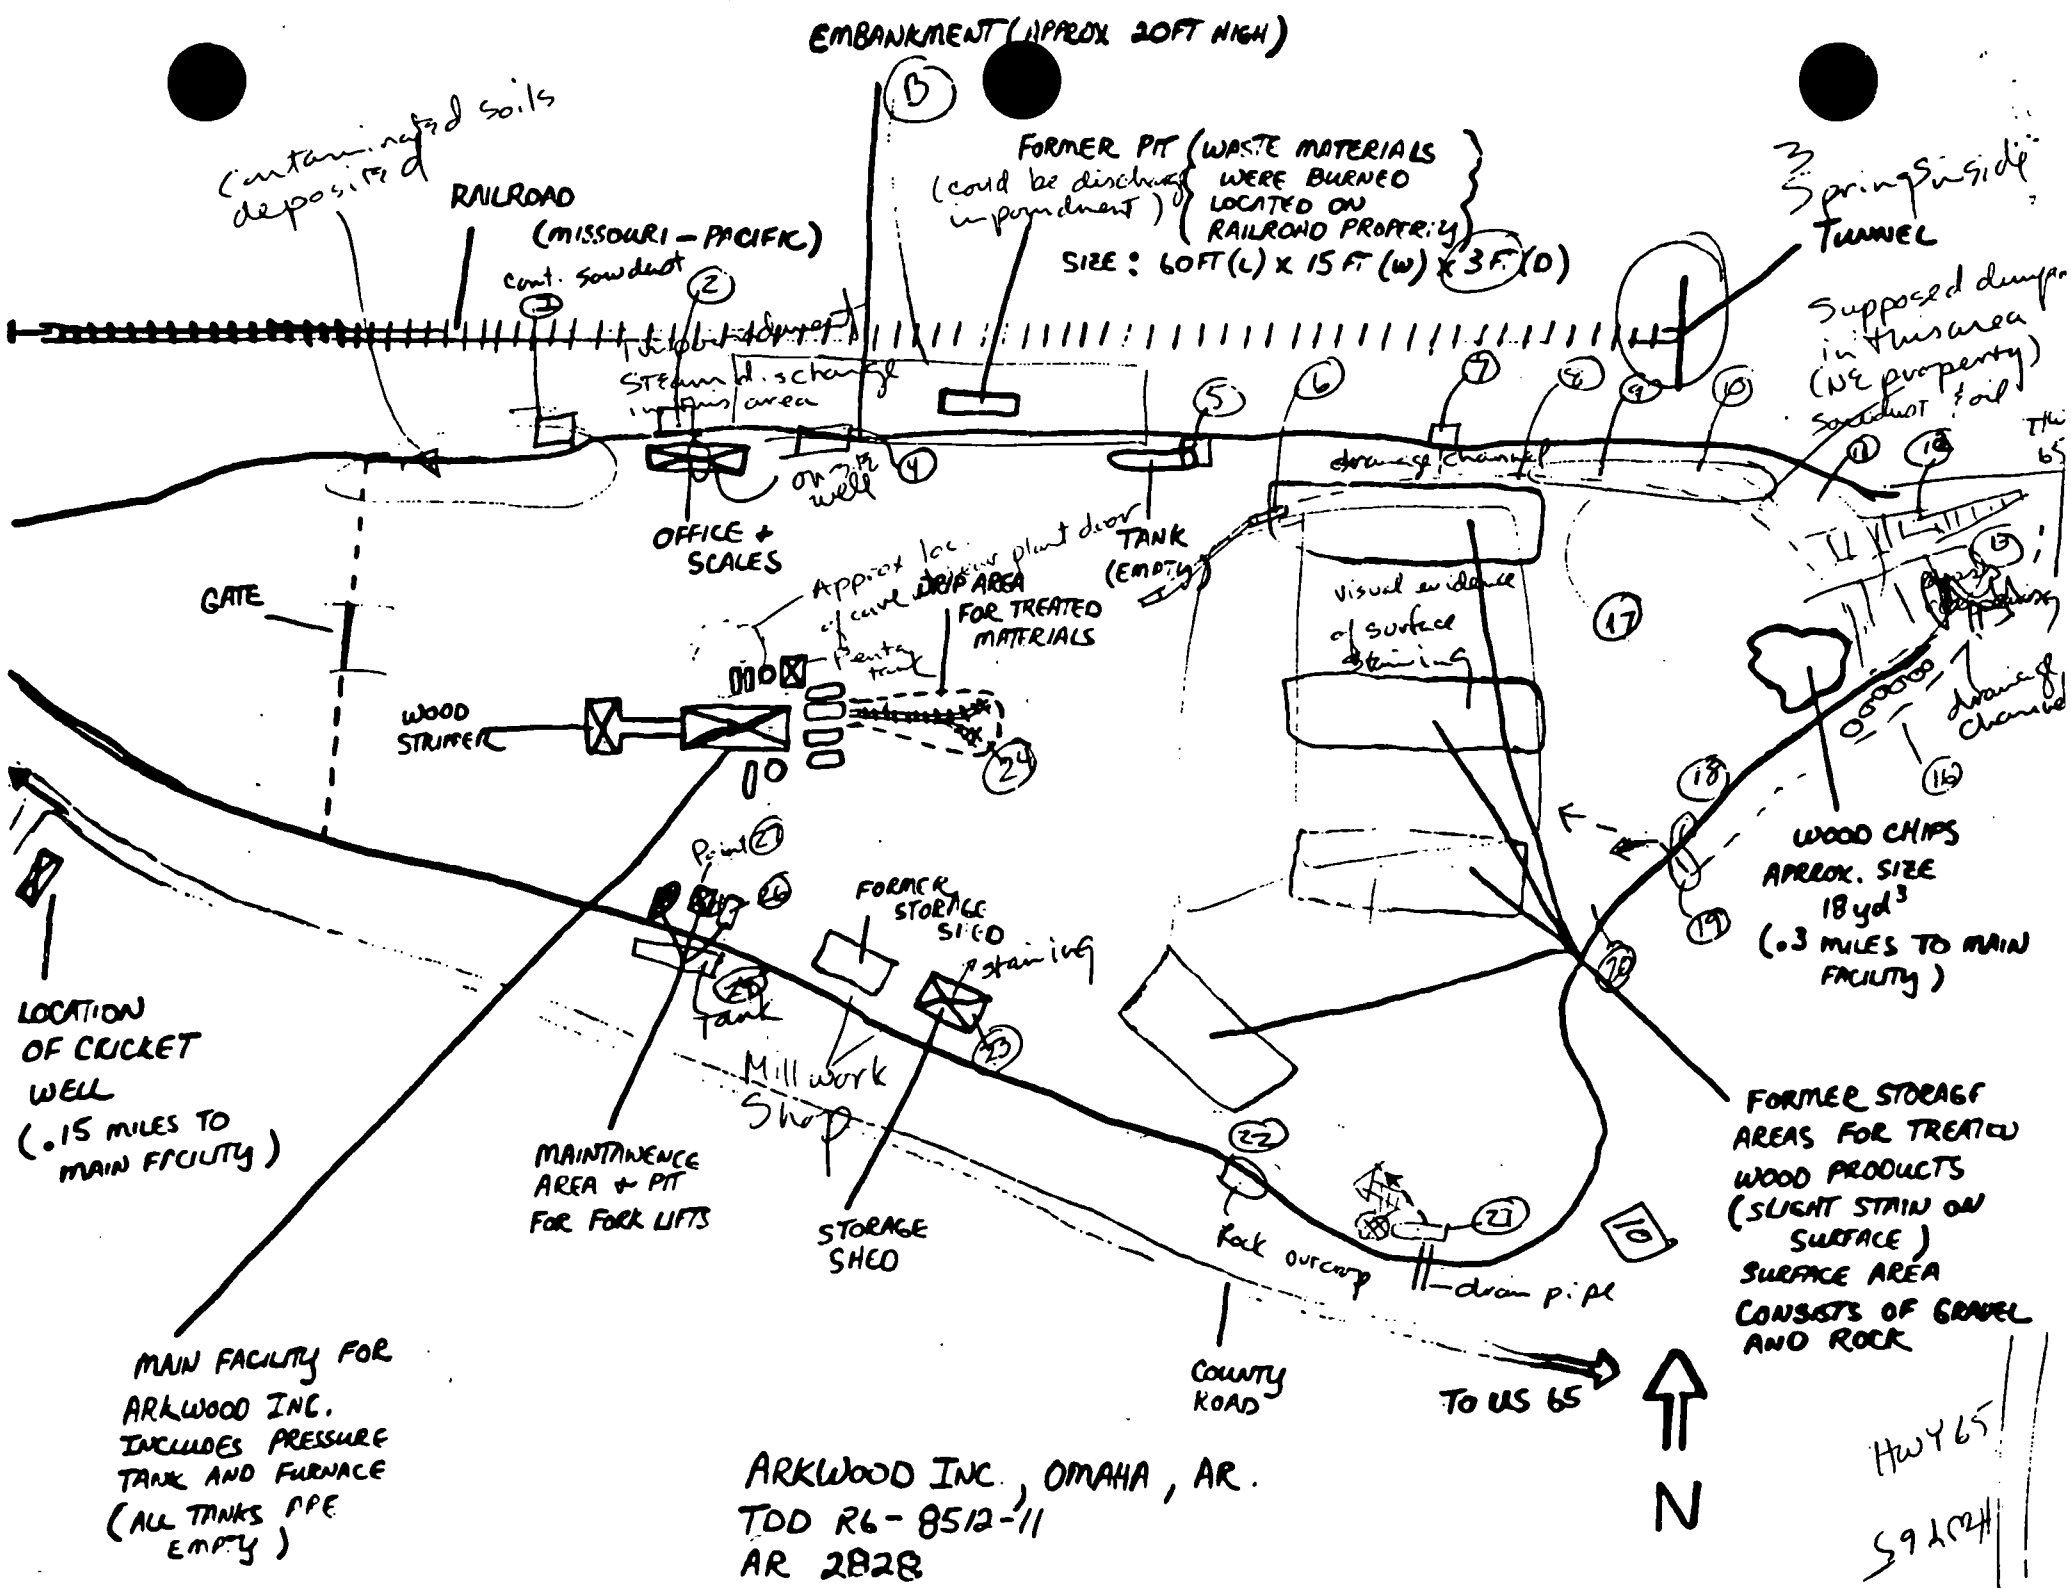 EMBANKMENT (APPROX 20FT HIGH)
B
Contaminated soils
deposited
RAILROAD
(MISSOURI - PACIFIC)
cont. sawdust
1
2
FORMER PIT
(could be discharge
impoundment)
(WASTE MATERIALS
WERE BURNED
LOCATED ON
RAILROAD PROPERTY)
SIZE: 60FT (L) x 15 FT (W) x 3 FT (D)
3
Springs inside
TUNNEL
Supposed
in this area
(NE property)
sawdust & oil
Steam discharge
in this area
4
5
6
7
8
9
10
11
12
65
drainage channel
on site
well
OFFICE +
SCALES
TANK
(EMPTY)
GATE
Approx loc.
of cave
near plant door
DRIP AREA
FOR TREATED
MATERIALS
Penta
tank
visual evidence
of surface
staining
17
drainage
channel
16
WOOD
STRIPPER
24
18
19
20
WOOD CHIPS
APPROX. SIZE
18 yd³
(.3 MILES TO MAIN
FACILITY)
Point 27
26
25
Tank
FORMER
STORAGE
SHED
staining
23
Mill work
Shop
LOCATION
OF CRICKET
WELL
(.15 MILES TO
MAIN FACILITY)
MAINTANENCE
AREA & PIT
FOR FORK LIFTS
STORAGE
SHED
22
Rock outcrop
21
drain pipe
10
FORMER STORAGE
AREAS FOR TREATED
WOOD PRODUCTS
(SLIGHT STAIN ON
SURFACE)
SURFACE AREA
CONSISTS OF GRAVEL
AND ROCK
MAIN FACILITY FOR
ARKWOOD INC.
INCLUDES PRESSURE
TANK AND FURNACE
(ALL TANKS ARE
EMPTY)
COUNTY
ROAD
TO US 65
N
HWY 65
ARKWOOD INC., OMAHA, AR.
TDD R6-8512-11
AR 2828